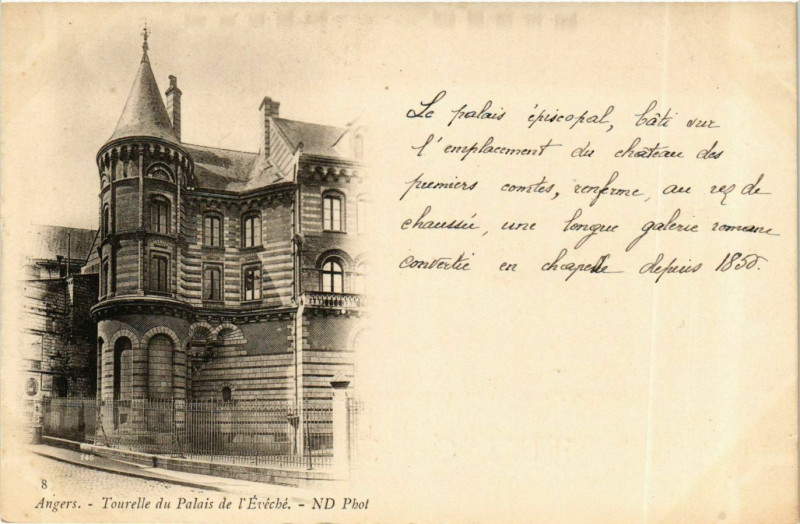 Le palais épiscopal, bâti sur
l'emplacement du château des
premiers comtes, renferme, au rez de
chaussée, une longue galerie romane
convertie en chapelle depuis 1850.
8
Angers. - Tourelle du Palais de l'Évêché. - ND Phot